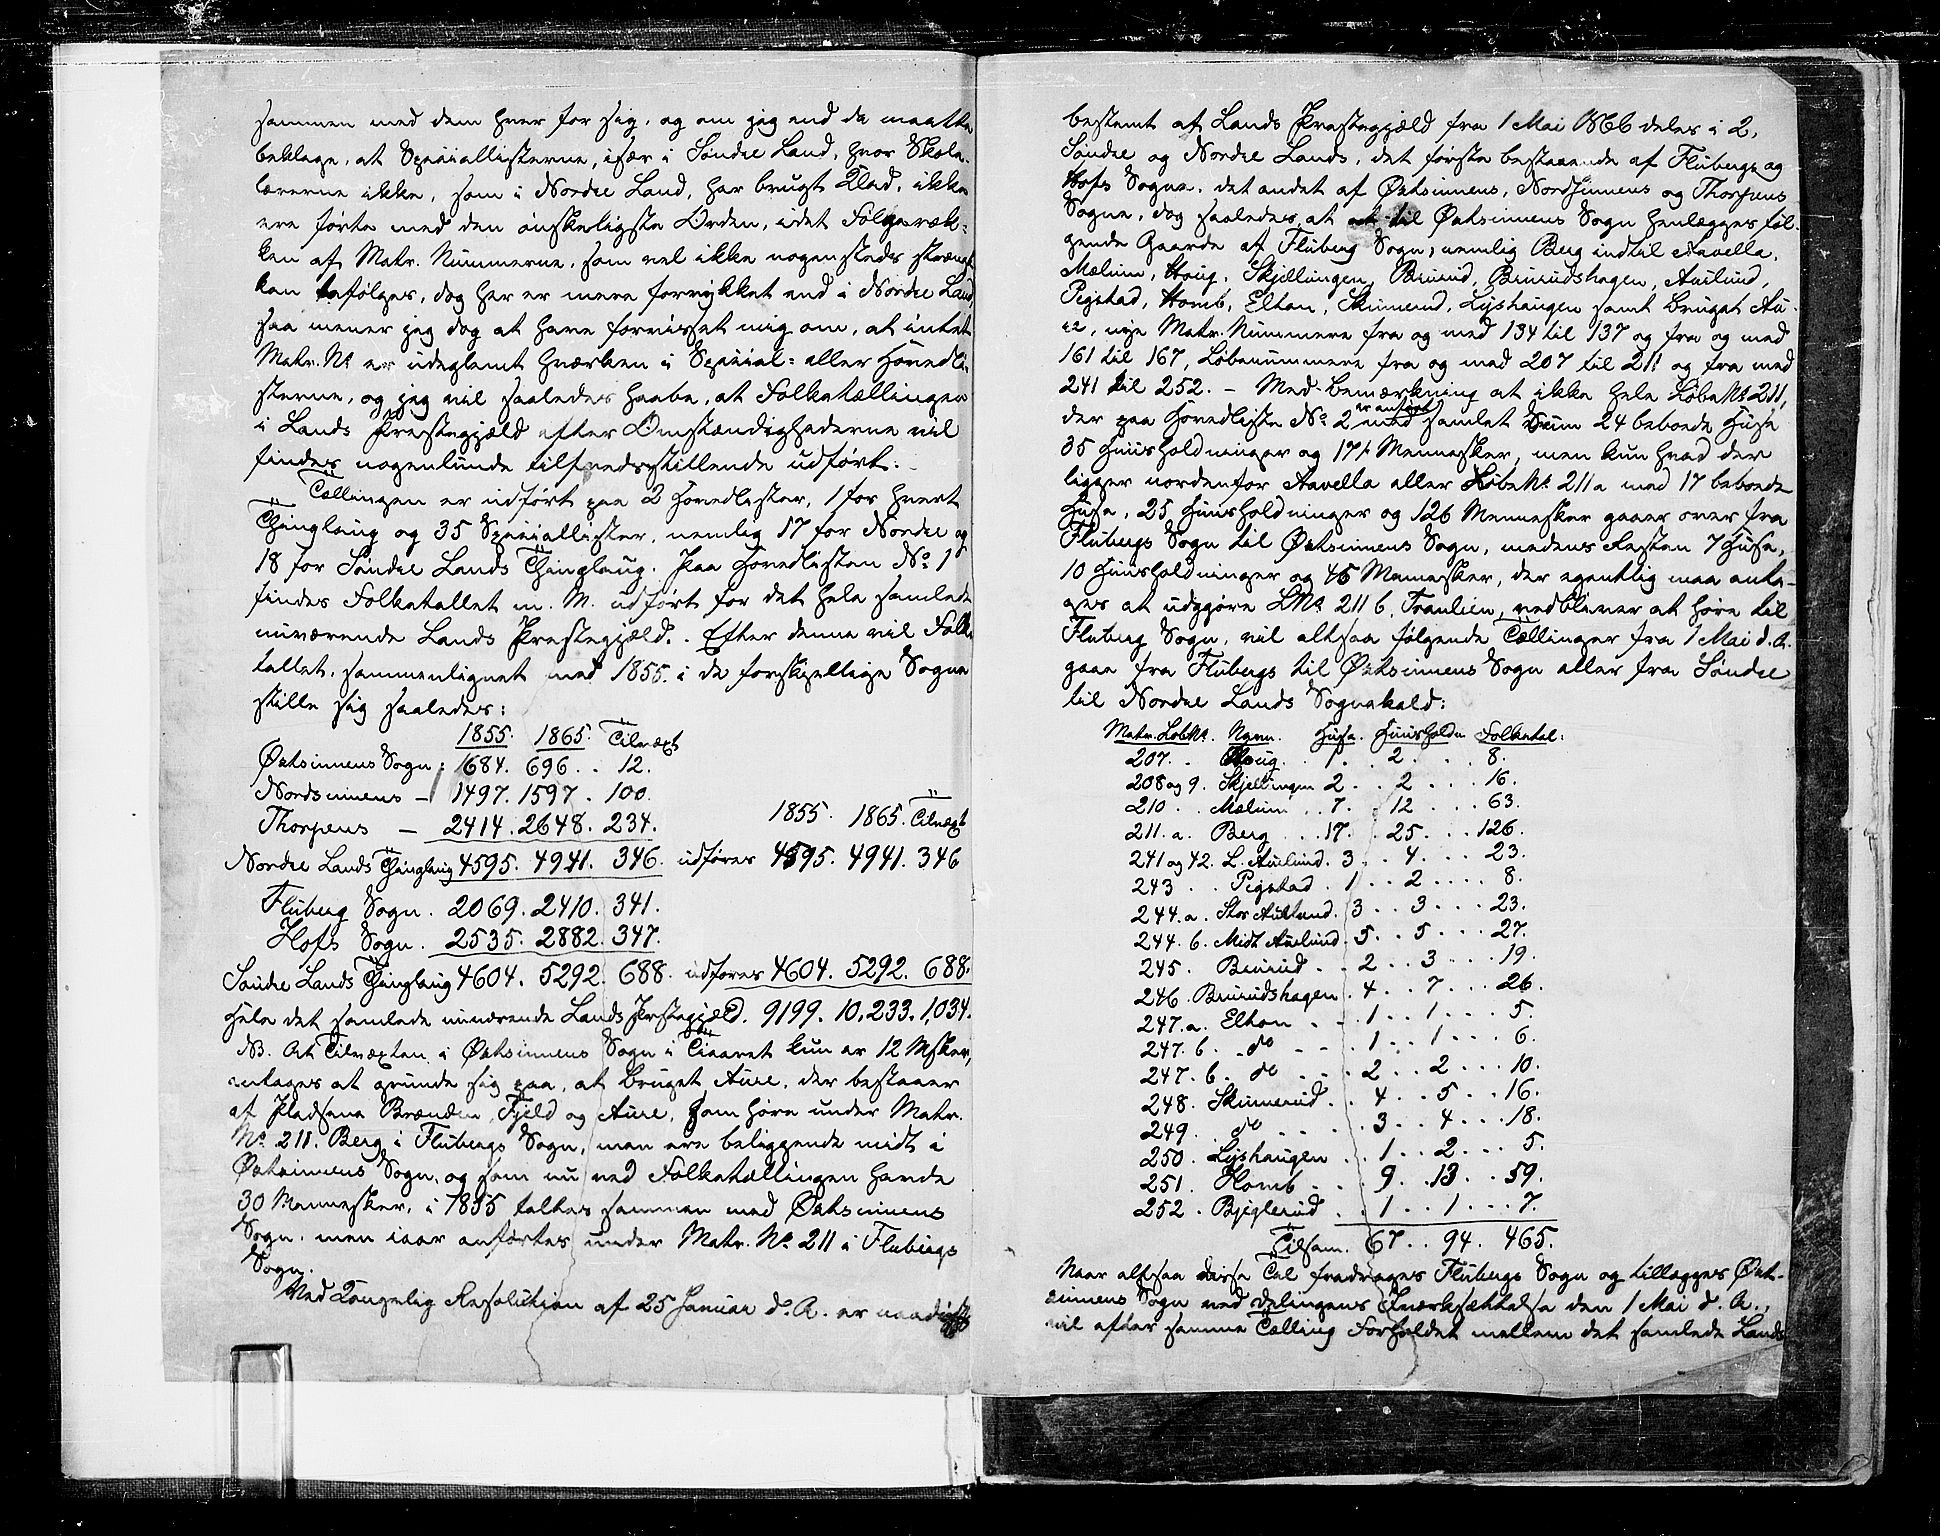 sammen med dem hver for sig, og om jeg end da maatte
beklage, at Speciallisterne, især i Søndre Land, hvor Skole-
lærerne ikke, som i Nordre Land, har brugt Klad, ikke
ere førte med den ønskeligste Orden, idet Følgeræk-
ken af Matr. Nummerne, som vel ikke nogensteds strængt
kan følges, dog her er mere forrykket end i Nordre Land,
saa mener jeg dog at have forvisset mig om, at intet
Matr. No er udeglemt hverken i Special- eller Hovedli-
sterne, og jeg vil saaledes haabe, at Folketællingen
i Lands Præstegjæld efter Omstændighederne vil
findes nogenlunde tilfredsstillende udført.-
Tællingen er udført paa 2 Hovedlister, 1 for hvert
Thinglaug og 35 Speciallister, nemlig 17 for Nordre og
18 for Søndre Lands Thinglaug. Paa Hovedlisten No 1
findes Folketallet m. M. udført for det hele samlede
nuværende Lands Præstegjæld. Efter denne vil Folke
tallet, sammenlignet med 1855. i de forskjellige Sogne
stille sig saaledes:
1855. 1865. Tilvæxt
Østsinnens Sogn: 684. 696 . . 12.
Nordsinnens — 1497. 1597 . 100.
Thorpens — 2414. 2648. 234. 1855. 1865. Tilvæxt
Nordre Lands Thinglaug 4595. 4941. 346. udføres 4595. 4941. 346
Fluberg Sogn. 2069. 2410. 341.
Hofs Sogn. 2535. 2882. 347.
Søndre Lands Thinglaug 4604. 5292. 688. udføres 4604. 5292. 688.
Hele det samlede nuværende Lands Præstegjæld. 9199. 10,233. 1,034.
NB. At Tilvæxten i Østsinnens Sogn i Tiaaret kun er 12 Msker,
antages at grunde sig paa, at Bruget Aure, der bestaaer
af Pladsene Brænden, Fjeld og Aure, som høre under Matr.
No 211. Berg i Flubergs Sogn, men ere beliggende midt i
Østsinnens Sogn, og som nu ved Folketællingen havde
30 Mennesker, i 1855 taltes sammen med Østsinnens
Sogn, men iaar anførtes under Matr. No 211 i Flubergs
Sogn.
Ved Kongelig Resolution af 25 Januar d. A. er naadigst
bestemt af Lands Præstegjæld fra 1 Mai 1866 deles i 2,
Søndre og Nordre Lands, det første bestaaende af Flubergs og
Hofs Sogne, det andet af Østsinnens, Nordsinnens og Thorpens
Sogne, dog saaledes, at til Østsinnens Sogn henlægges føl-
gende Gaarde af Fluberg Sogn, nemlig Berg indtil Aavella,
Mælum, Houg, Skjellingen, Brurud, Brurudshagen, Aurlund,
Pegstad, Homb, Elton, Skimerud, Lyshaugen samt Bruget Au-
re, nye Matr. Nummere fra og med 134 til 137 og fra og med
161 til 167, Løbenummere fra og med 207 til 211 og fra med
241 til 252. – Med Bemærkning at ikke hele Løbe No 211,
der paa Hovedliste No 2 er anført med samlet Sum 24 beboede Huse
35 Huusholdninger og 171 Mennesker, men kun hvad der
ligger nordenfor Aavella eller Løbe No. 211a med 17 beboede
Huse, 25 Huusholdninger og 126 Mennesker gaaer over fra
Flubergs Sogn til Østsinnens Sogn, medens Resten 7 Huse,
10 Huusholdninger og 45 Mennesker, der egentlig maa anta-
ges at udgjøre LNo. 211 b, Tranlien, vedbliver at høre til
Fluberg Sogn, vil altsaa følgende Tællinger fra 1 Mai d. A.
gaae fra Flubergs til Østsinnens Sogn eller fra Søndre
til Nordre Lands Sognekald:
Matr. LøbNo. Navn. Huse. Huushold. Folketal:
207. . Houg. . 1 . . 2 . . . 8.
208 og 9. Skjellingen 2 . . 2 . . . 16.
210 . . Mælum . 7 . . 12 . . . 63.
211. a. Berg . . 17. . 25 . . . 126.
241 og 42. L. Aurlund. 3 . . 4 . . . 23.
243 . . Pegstad . 1 . . 2 . . . . 8.
244. a. Stor Aurlund. 3 . . 3 . . . 23.
244. b. Midt Aurlund. 5 . . 5 . . . 27.
245. Brurud . . 2 . . 3 . . . 19.
246. Brurudshagen . 4 . . 7 . . . 26.
247. a. Elton . . . 1 . . 1 . . . 5.
247. b. do . . . 1 . . 1 . . . 6.
247. b. do . . . 2 . . 2 . . . 10.
248. Skimerud . . 4 . . 5 . . . 16.
249. do . . . . 3 . . 4 . . . 18.
250. Lyshaugen . . 1 . . 2 . . . 5.
251. Homb . . . 9 . . 13 . . 59.
252. Bjeglerud . . 1 . . 1 . . . 7.
Tilsam. 67 . . 94. 465.
Naar altsaa disse Tal fradrages Flubergs Sogn og tillægges Øst-
sinnens Sogn ved Delingens Iværksættelse den 1 Mai d. A.,
vil efter samme Tælling Forholdet mellem det samlede Lands